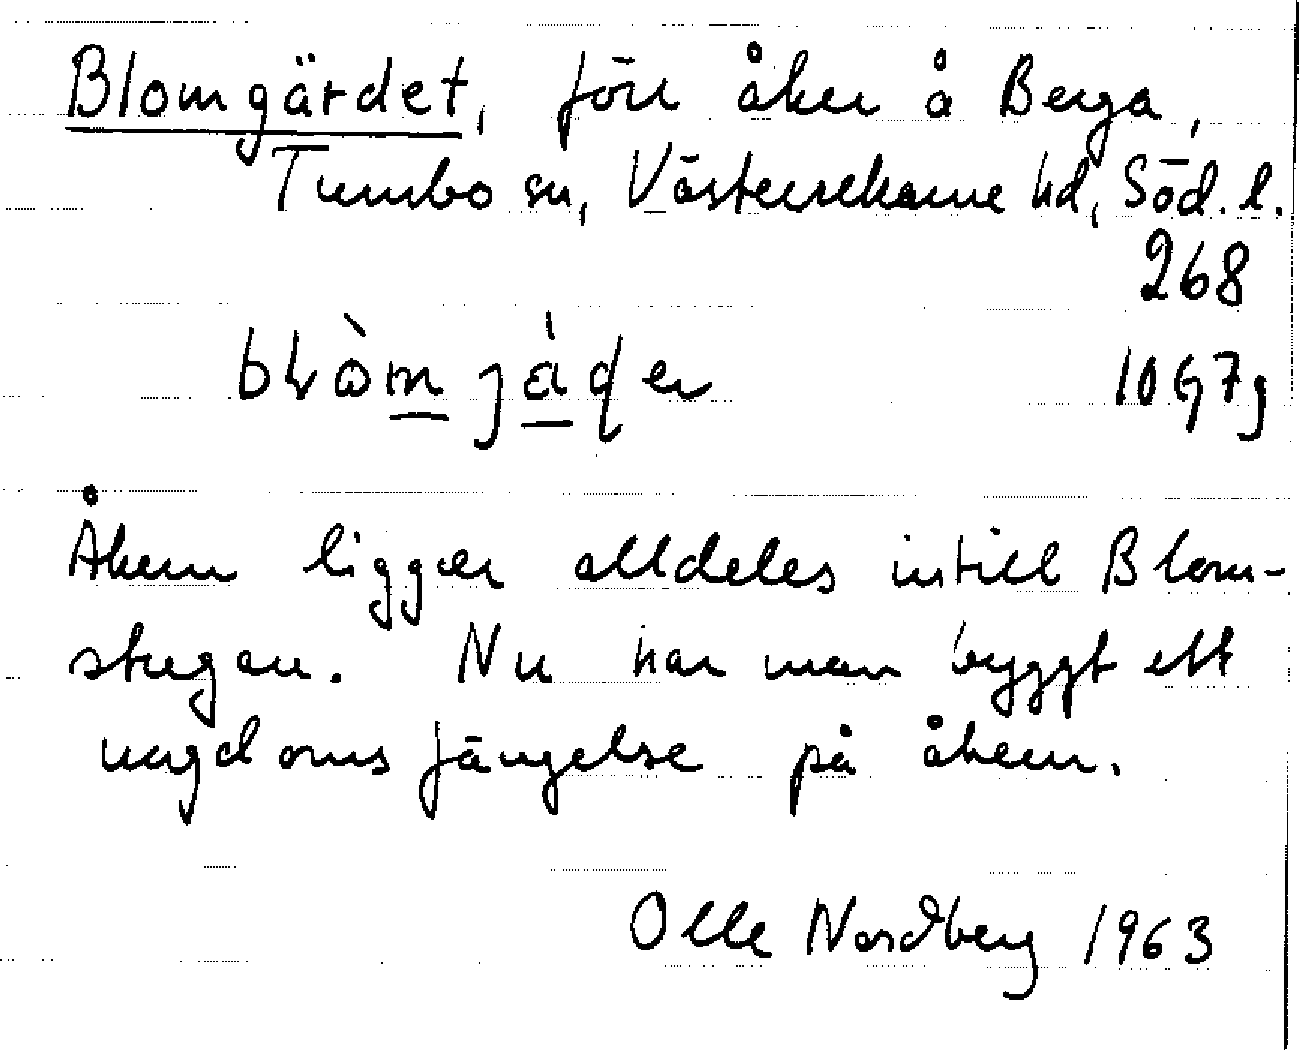 Blomgärdet, förr åker å Berga,
Tumbo sn, Västerrekarne hd, Söd. l.
268
10G7g
Åkern ligger alldeles intill Blom-
stugan. Nu har man byggt ett
ungdomsfängelse på åkern.
Olle Nordberg 1963